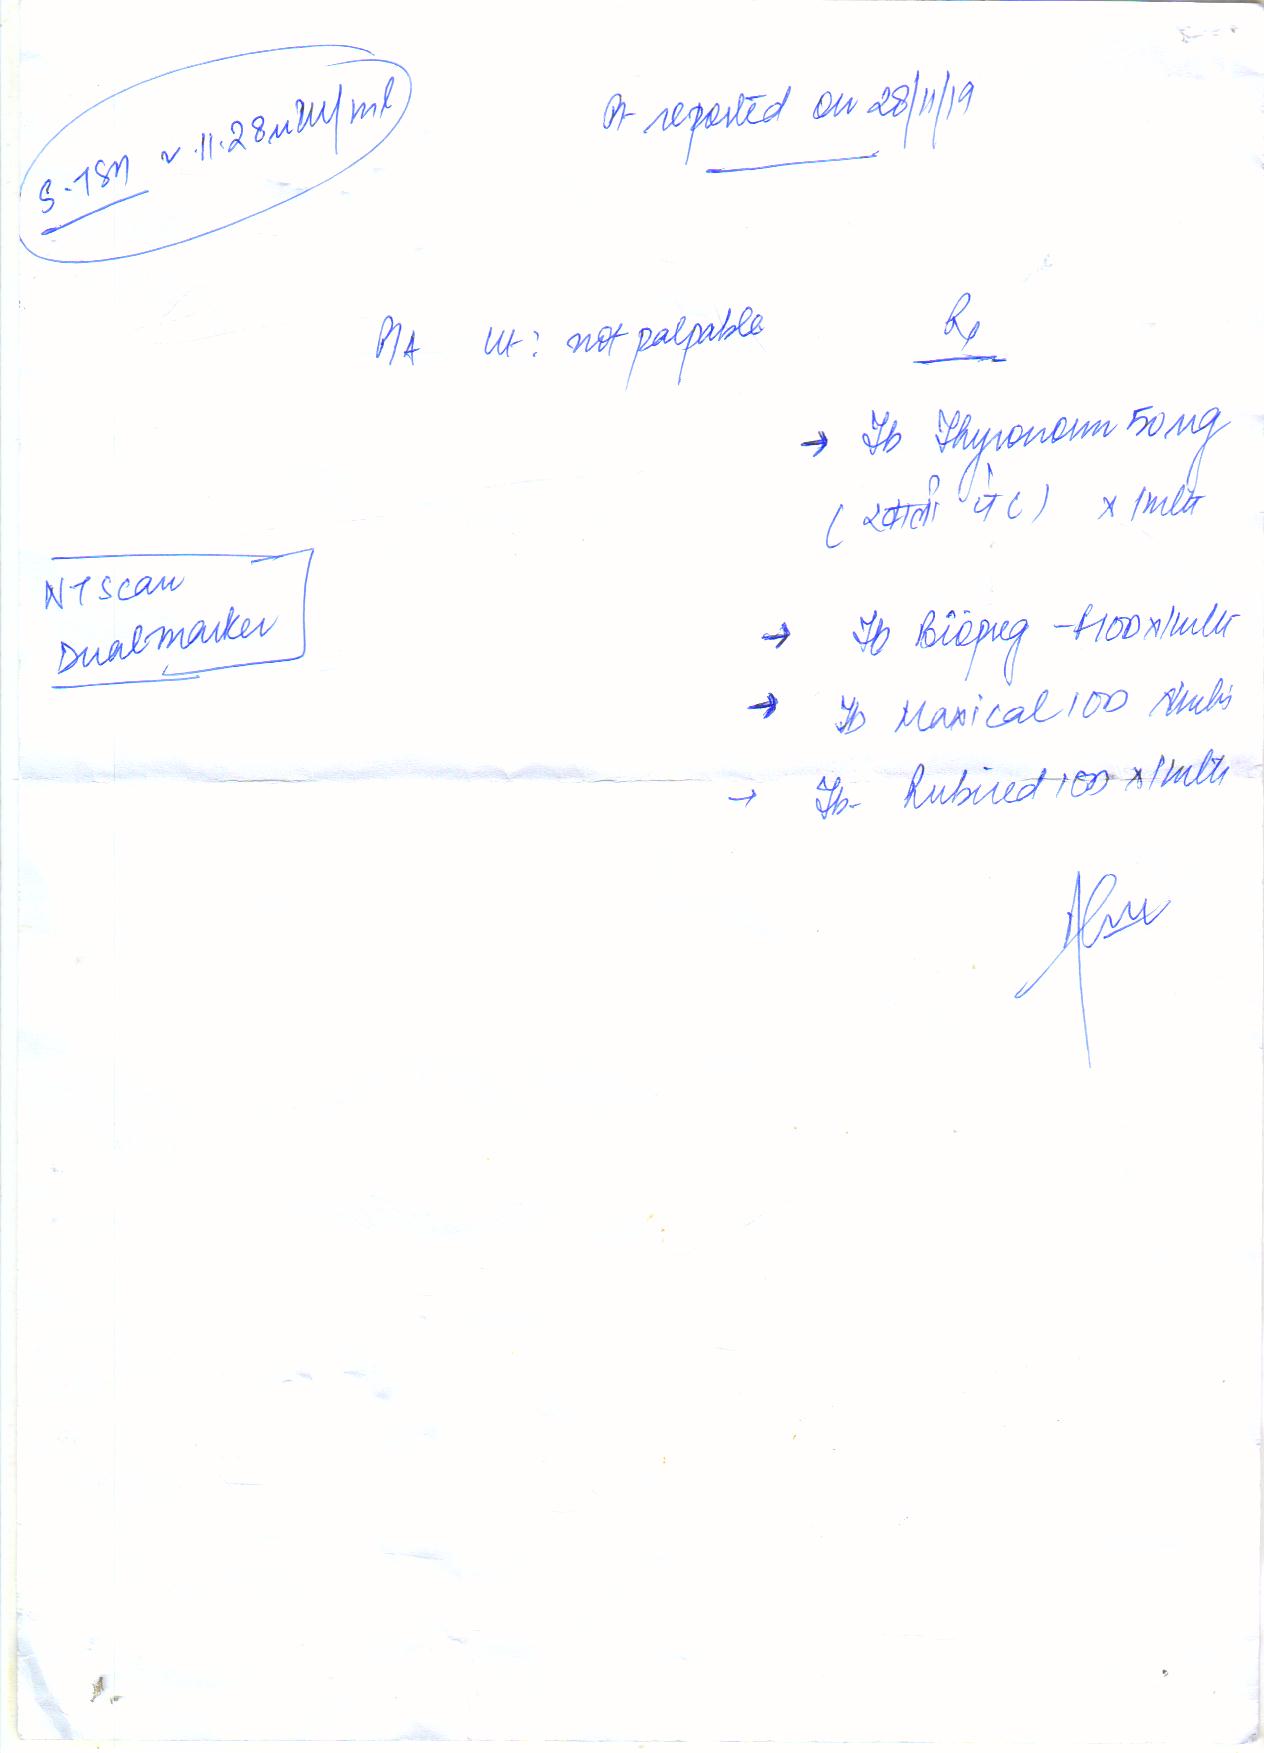 S.TSH ~ 11.28uIU/ml
Pt reported on 28/11/19
P/A Ut: not palpable
Rx
→ Tb Thyronorm 50 ug
(खाली पेट) x 1mth
NT Scan
Dual marker
→ Tb Biopreg - 100 x 1mth
→ Tb Maxical 100 x 1mth
→ Tb- Rubired 100 x 1mth